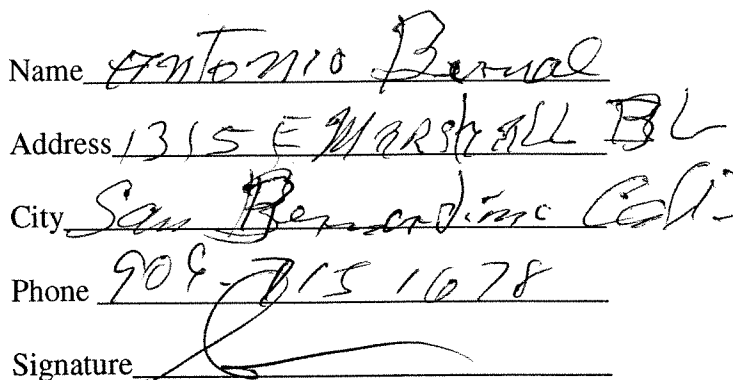 Name Antonio Bernal
Address 1315 E MARSHALL BL
City San Bernardino Cali
Phone 909-715 1678
Signature